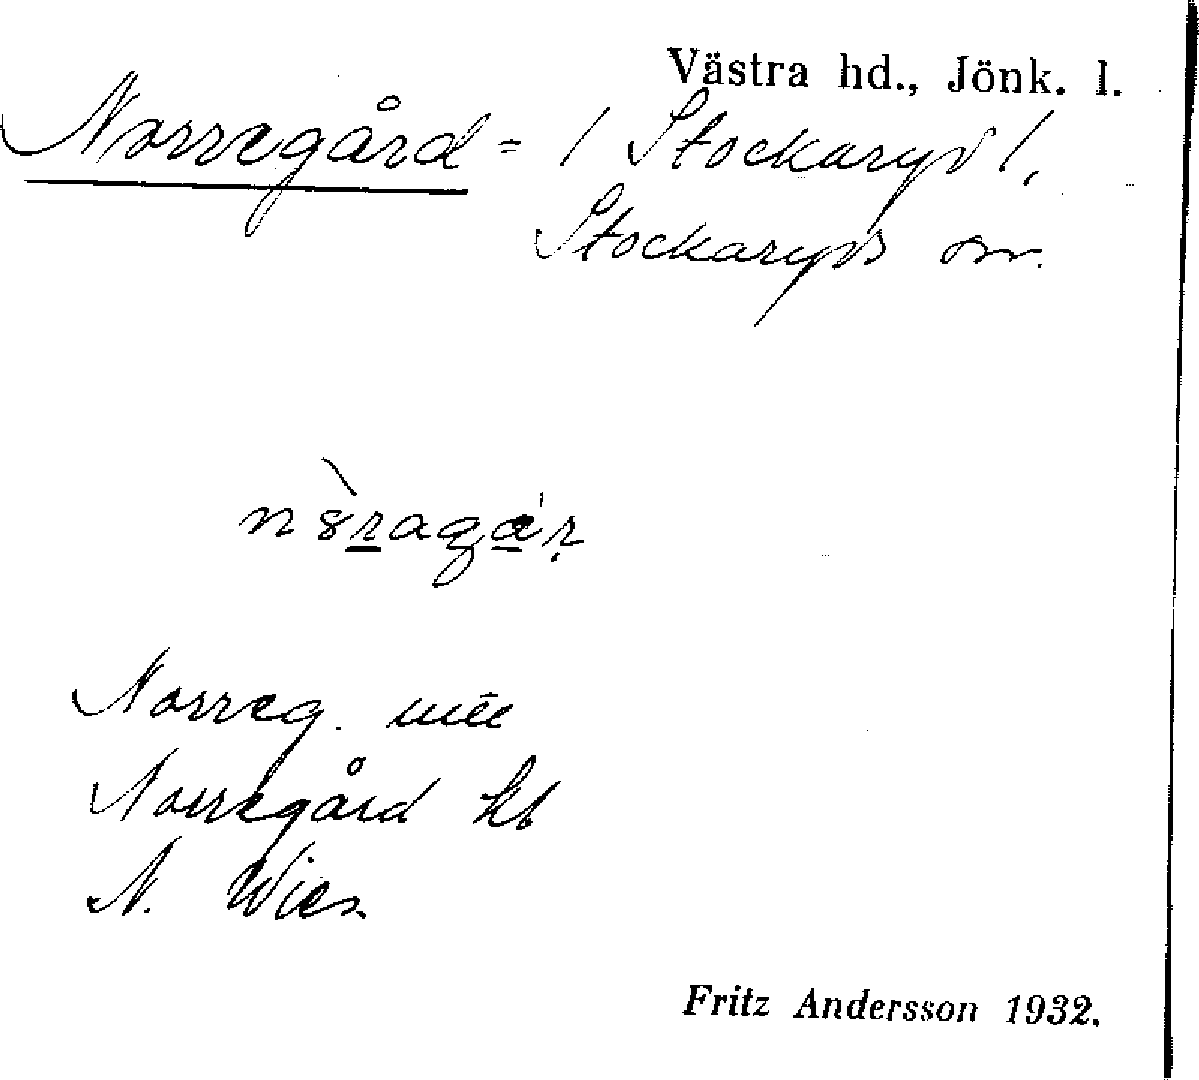 Västra hd., Jönk. l.
Norregård = 1 Stockaryd 1,
Stockaryds sn.
Norreg.
Norregård kb
N. Wies.
Fritz Andersson 1932.